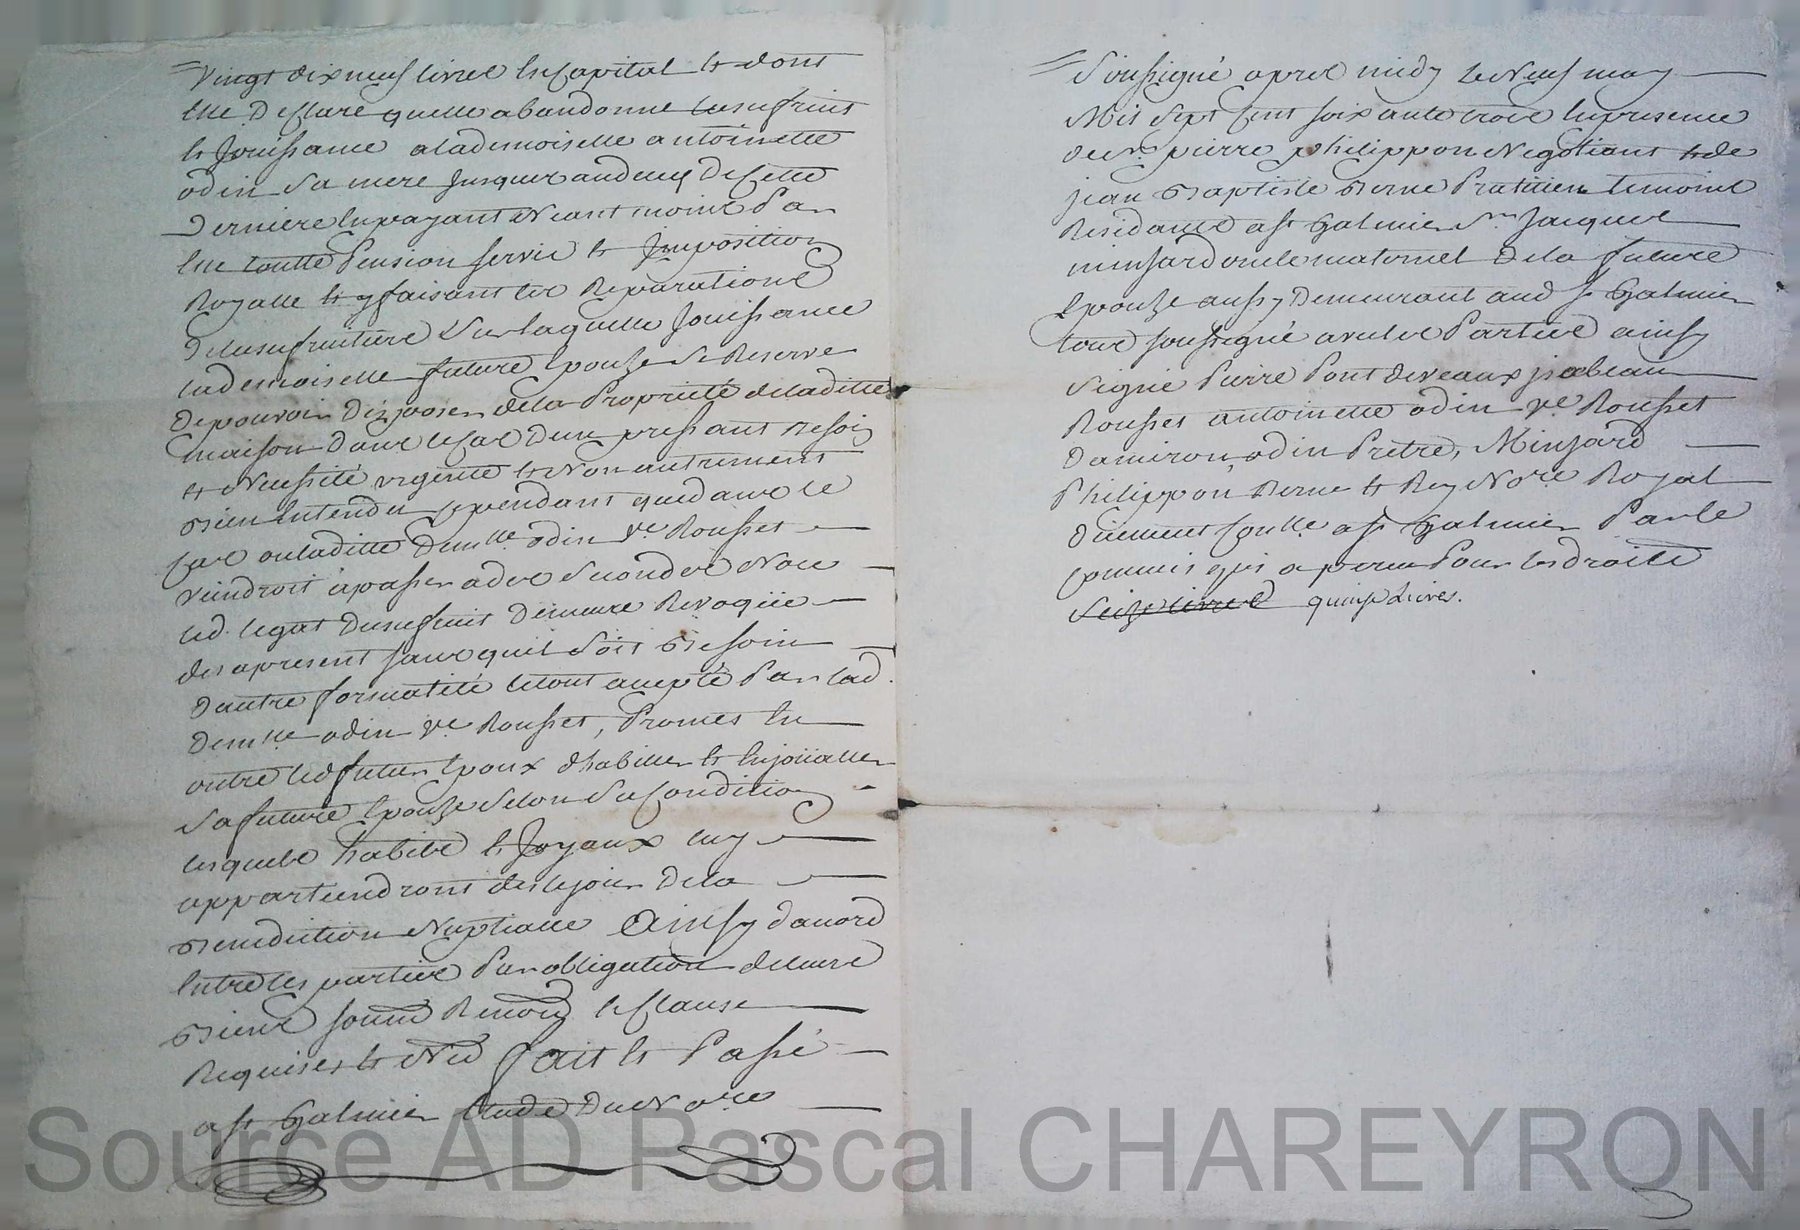 Vingt dix neuf livres En Capital Et dont
Elle Declare quelle abandonne Lusufruit
Et Jouissance a la demoiselle antoinette
odin Sa mere Jusques au deces De Cette
Derniere En payant Neant moins Par
Elle toutte Pension servis Et Imposition
Royalle Et y faisant les Reparations
De Lusufruitiere Sur laquelle Jouissance
la demoiselle future Epouse Se Reserve
De pouvoir Disposer dela Propriété de laditte
maison Dans le Cas Dun pressant Besoin
Et Necessité urgente Et Non autrement
Bien Entendu Cependant que dans le
Cas ou laditte Demlle odin Ve Rousset
viendroit a passer a des Secondes Noces
led. legat Dusufruit Demeure Revoqüé
des apresent sans quil Soit Besoin
Dautre formalité le tout accepté Par lad.
Demlle odin Ve Rousset, Promet En
outre led futur Epoux d'habiller Et Enjoüaller
Sa future Epouse Selon Sa Condition
lesquels habits Et Joyaux luy
appartiendront des le jour Dela
Benediction Nuptialle Ainsy dacord
Entre les parties Par obligation de leurs
Biens soumis Renons Et Clause
Requises Et Ned fait Et Passé
a St Galmier Etude Du Nore
Soussigné apres midy le Neuf may
Mil Sept Cent soixante trois En presence
de Sr pierre philippon Negotiant Et de
jean Baptiste Berne Pratitien temoins
Residants a St Galmier Sr Jacques
minjard oncle maternel Dela future
Epouse aussy Demeurant aud St Galmier
tous soussigné avec les Parties ainsy
Signé Pierre Pont deveaux jsabeau
Rousset antoinette odin Ve Rousset
Damiron, odin Pretre, Minjard
Philippon Berne Et Rey Nore Royal
Düement Conlle a St Galmier Par le
Commis qui a perçu Pour les droits
Seize livres quinze Livres.
Source AD Pascal CHAREYRON